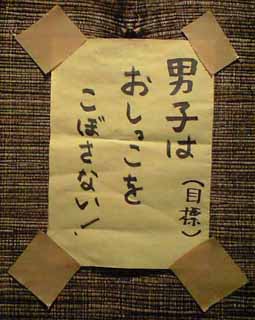 男子は
おしっこを
こぼさない!
(目標)